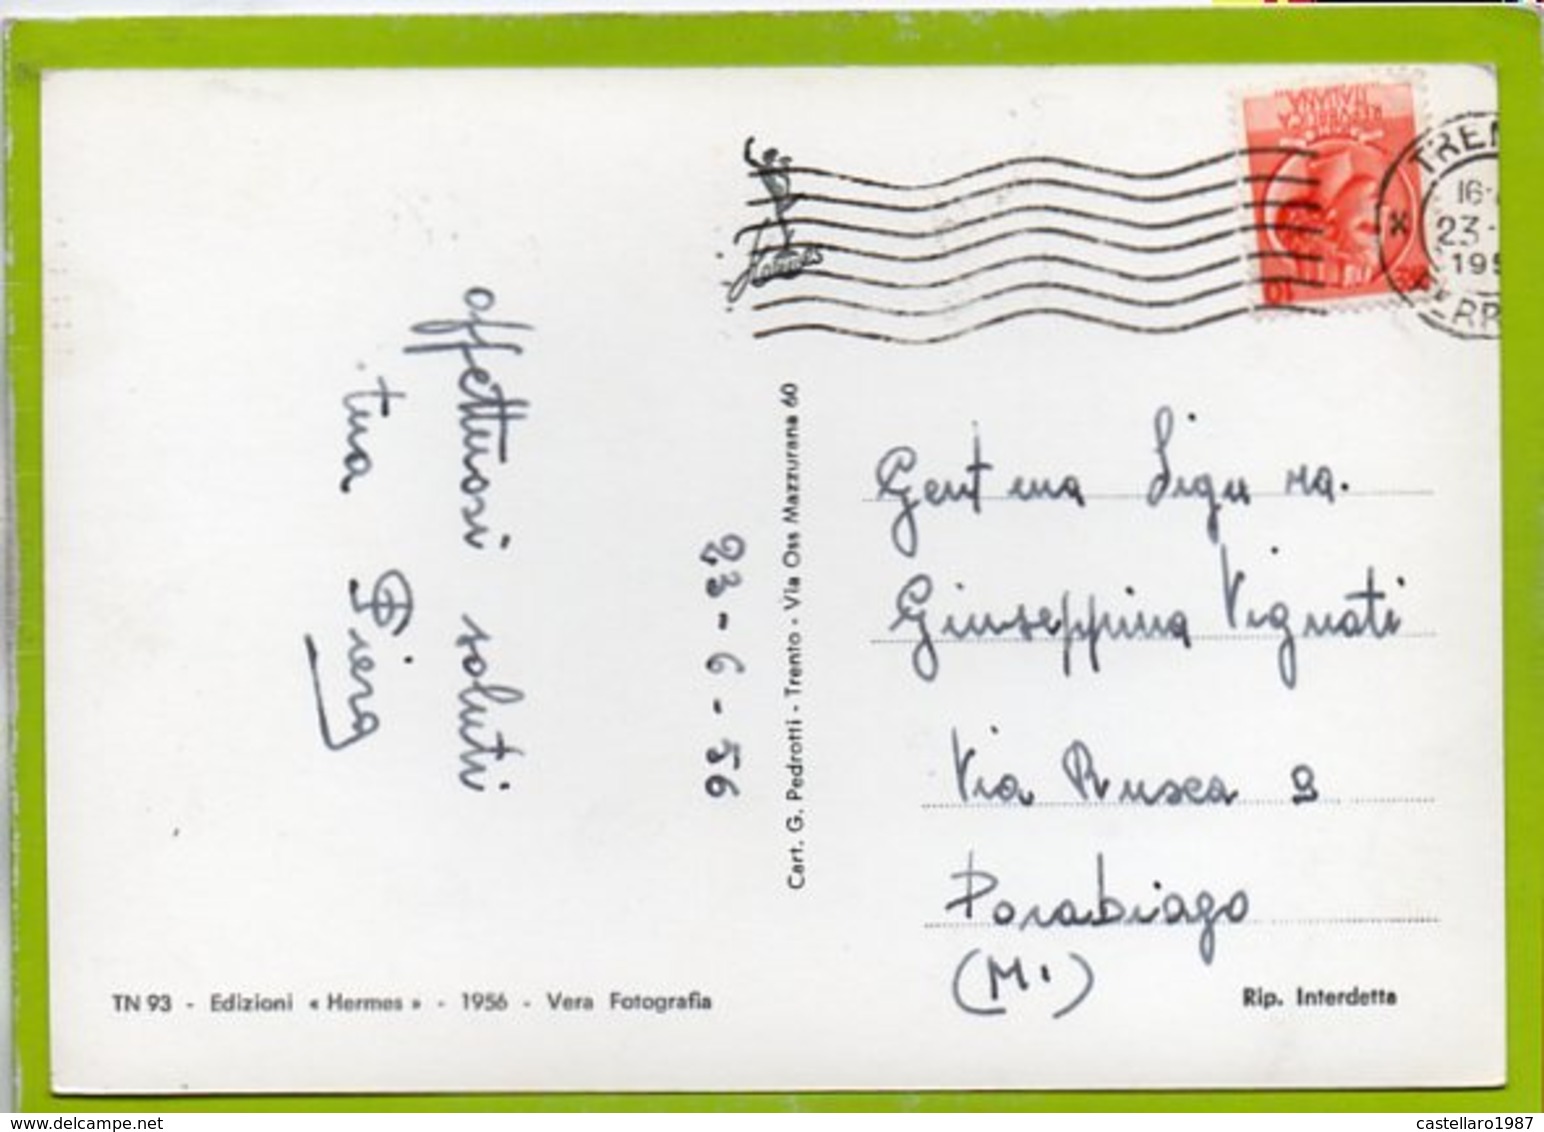 affettuosi saluti
tua Piera
23-6-56
Cart. G. Pedrotti - Trento - Via Oss Mazzurana 60
TN 93 - Edizioni « Hermes » - 1956 - Vera Fotografia
Hermes
REPUBBLICA
ITALIANA
TREN
16-
23-
195
Gent ma Sigu ra.
Giuseppina Vignati
Via Rusca 9
Parabiago
(M.)
Rip. Interdetta
castellaro1987